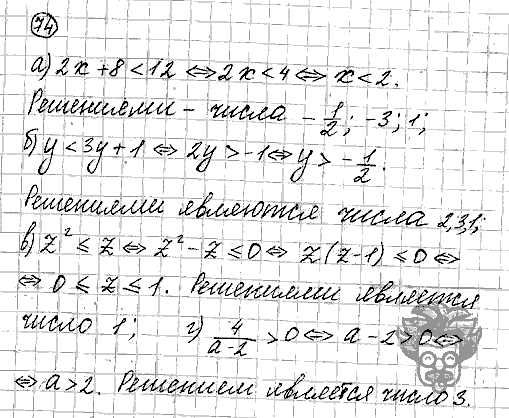 74
а) 2x+8<12 ⇔ 2x<4 ⇔ x<2.
Решениями – числа -1/2; -3; 1;
б) y<3y+1 ⇔ 2y>-1 ⇔ y>-1/2.
Решениями являются числа 2,3,1;
в) z² ≤ z ⇔ z²-z ≤ 0 ⇔ z(z-1) ≤ 0 ⇔
⇔ 0 ≤ z ≤ 1. Решениями является
число 1; г) 4/(a-2) > 0 ⇔ a-2>0 ⇔
⇔ a>2. Решением является число 3.